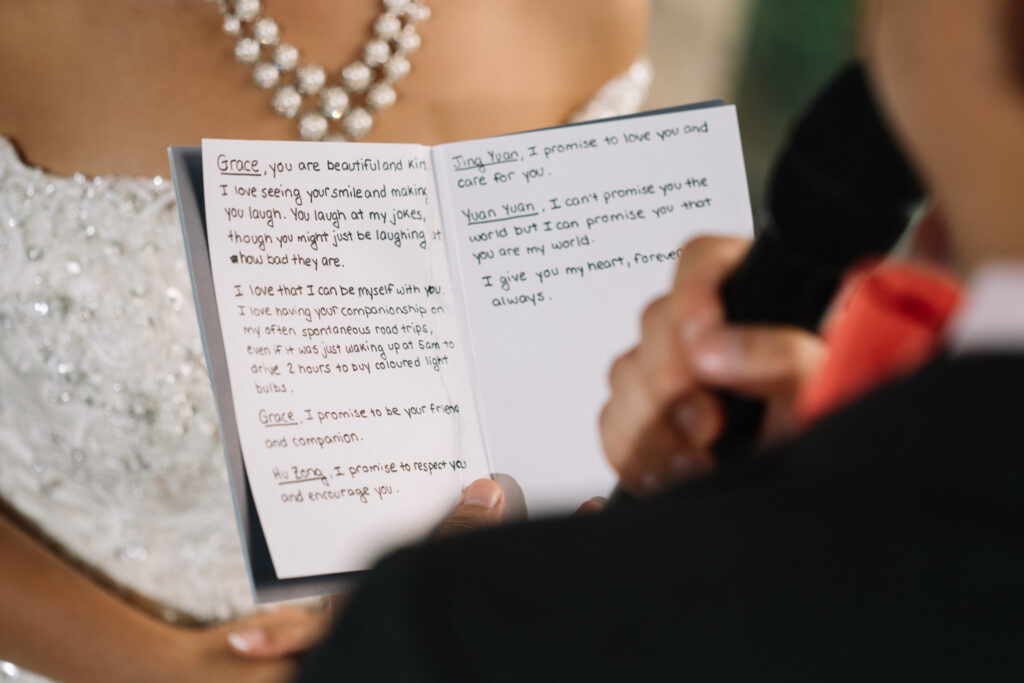 Grace, you are beautiful and kin
I love seeing your smile and making
you laugh. You laugh at my jokes,
though you might just be laughing at
how bad they are.
I love that I can be myself with you.
I love having your companionship on
my often spontaneous road trips,
even if it was just waking up at 5am to
drive 2 hours to buy coloured light
bulbs.
Grace, I promise to be your friend
and companion.
Hu Zong, I promise to respect you
and encourage you.
Jing Yuan, I promise to love you and
care for you.
Yuan Yuan, I can't promise you the
world but I can promise you that
you are my world.
I give you my heart, forever
always.